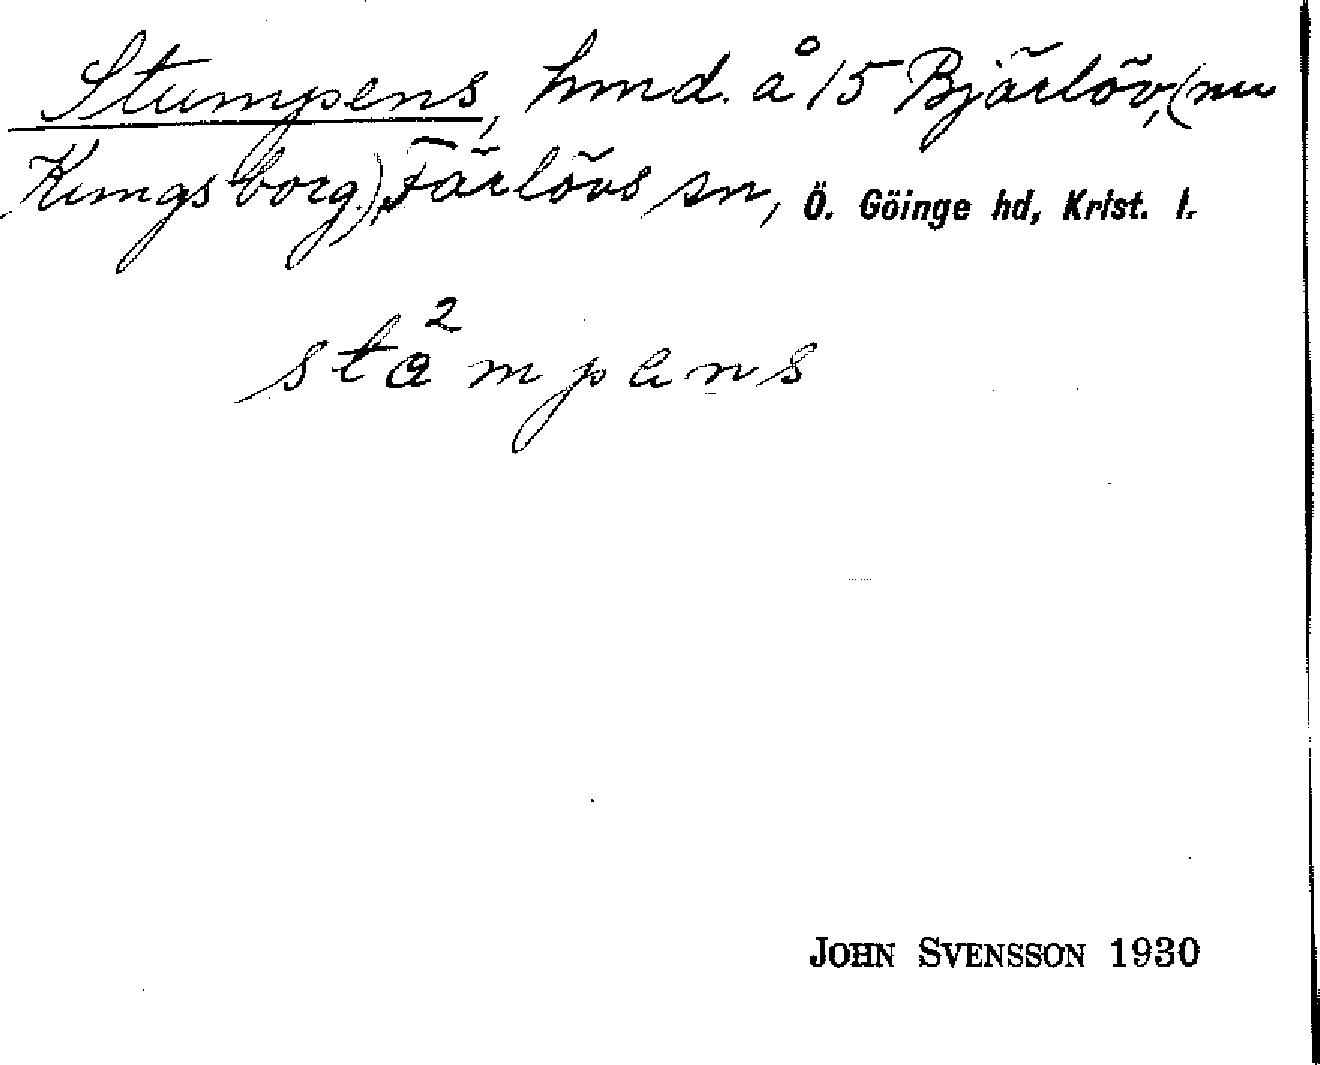 Stumpens, hmd. å 15 Bjärlöv, (nu
Kungsborg), Färlövs sn, Ö. Göinge hd, Krist. l.
sta²mpens
JOHN SVENSSON 1930